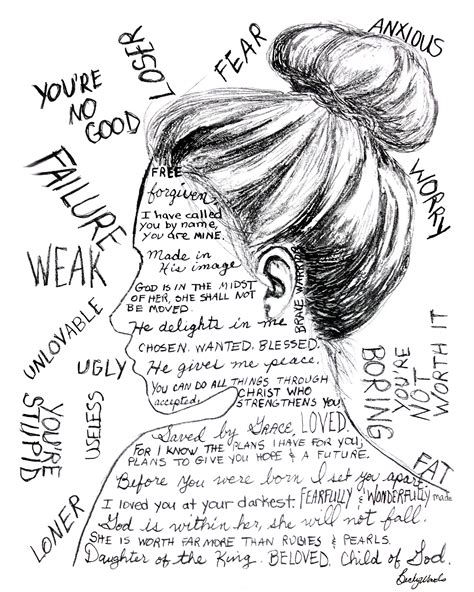 LOSER
FEAR
ANXIOUS
YOU'RE
NO
GOOD
FAILURE
WORRY
WEAK
UNLOVABLE
UGLY
USELESS
YOU'RE
STUPID
LONER
BORING
YOU'RE
NOT
WORTH IT
FAT
FREE
forgiven
I have called
you by name,
you are MINE.
Made in
His image
GOD IS IN THE MIDST
OF HER, SHE SHALL NOT
BE MOVED.
BRAVE WARRIOR
He delights in me
CHOSEN. WANTED. BLESSED.
He gives me peace.
YOU CAN DO ALL THINGS THROUGH
accepted. CHRIST WHO
STRENGTHENS YOU
Saved by GRACE, LOVED.
FOR I KNOW THE PLANS I HAVE FOR YOU,
PLANS TO GIVE YOU HOPE & A FUTURE.
Before you were born I set you apart
I loved you at your darkest. FEARFULLY & WONDERFULLY made
God is within her, she will not fall.
SHE IS WORTH FAR MORE THAN RUBIES & PEARLS.
Daughter of the King. BELOVED. Child of God.